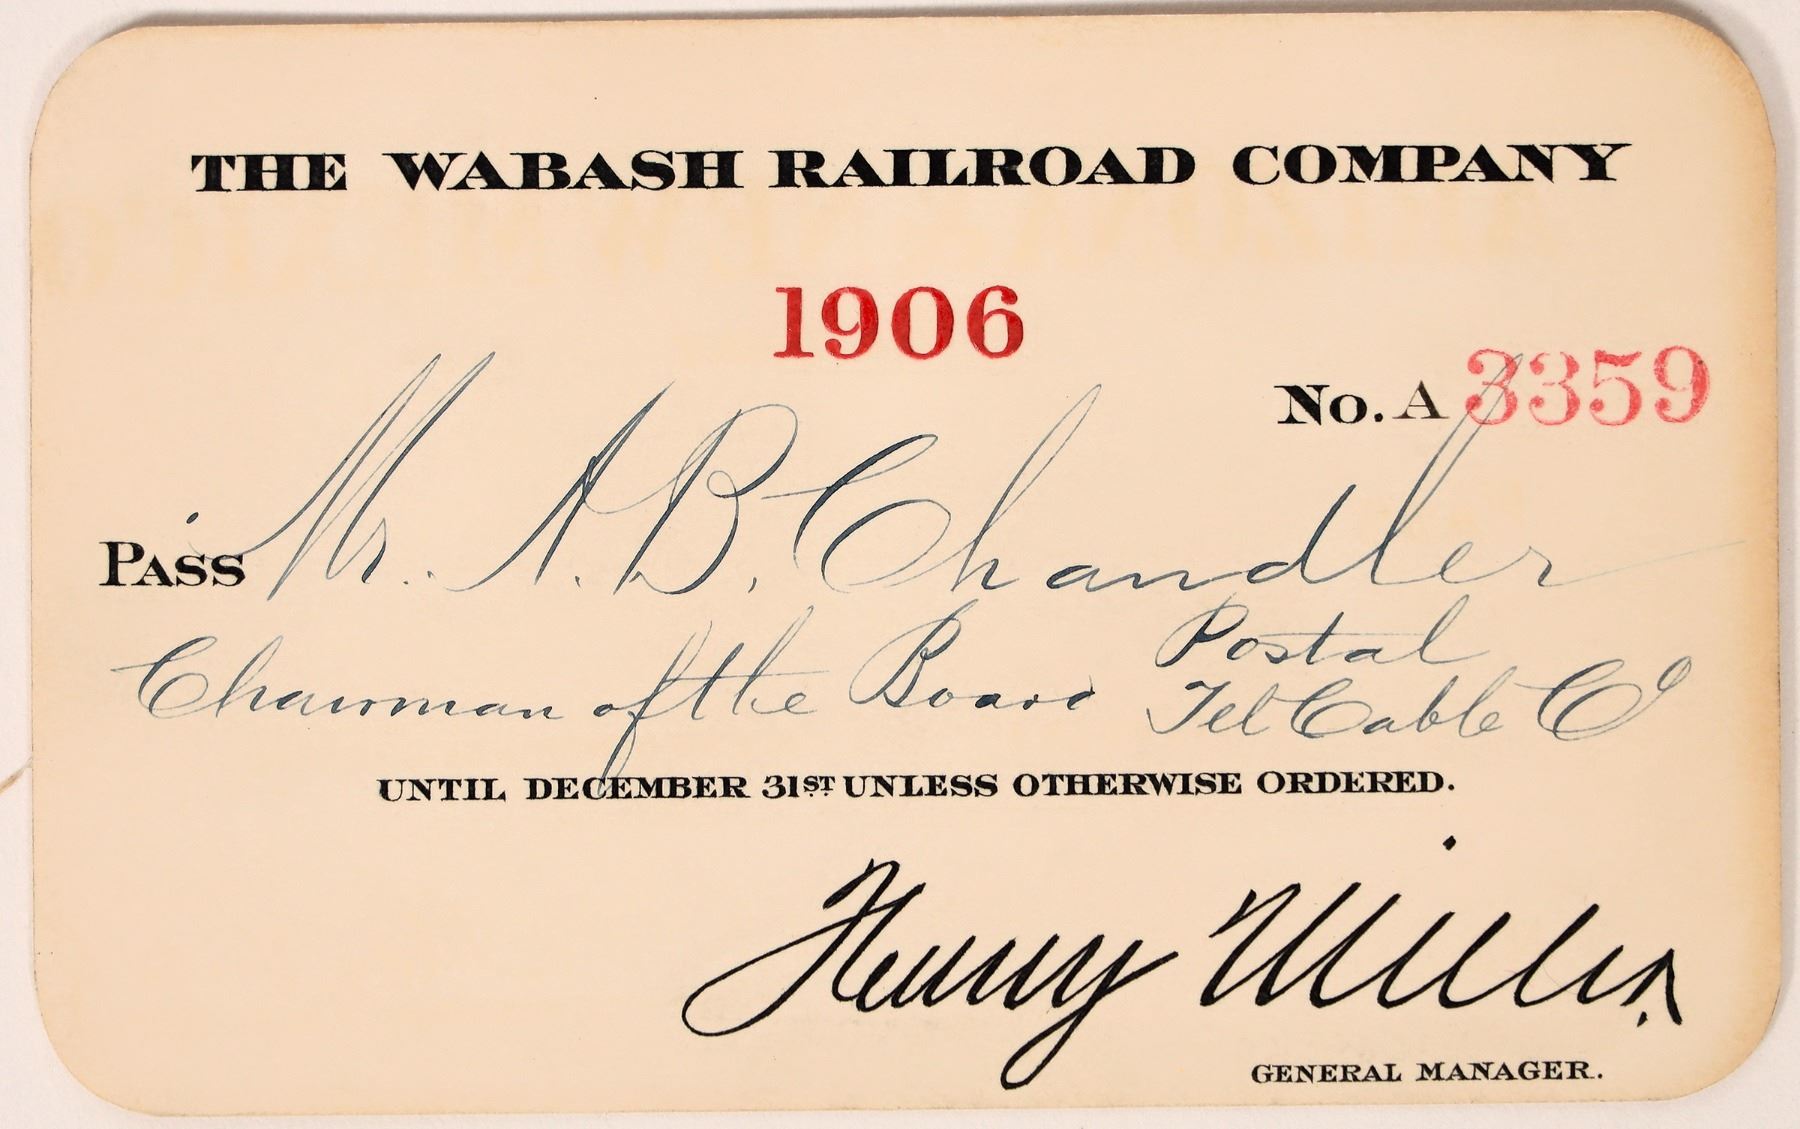 THE WABASH RAILROAD COMPANY
1906
No. A 3359
PASS Mr. A. B. Chandler
Chairman of the Board Postal
Tel Cable Co
UNTIL DECEMBER 31ST UNLESS OTHERWISE ORDERED.
Henry Miller
GENERAL MANAGER.